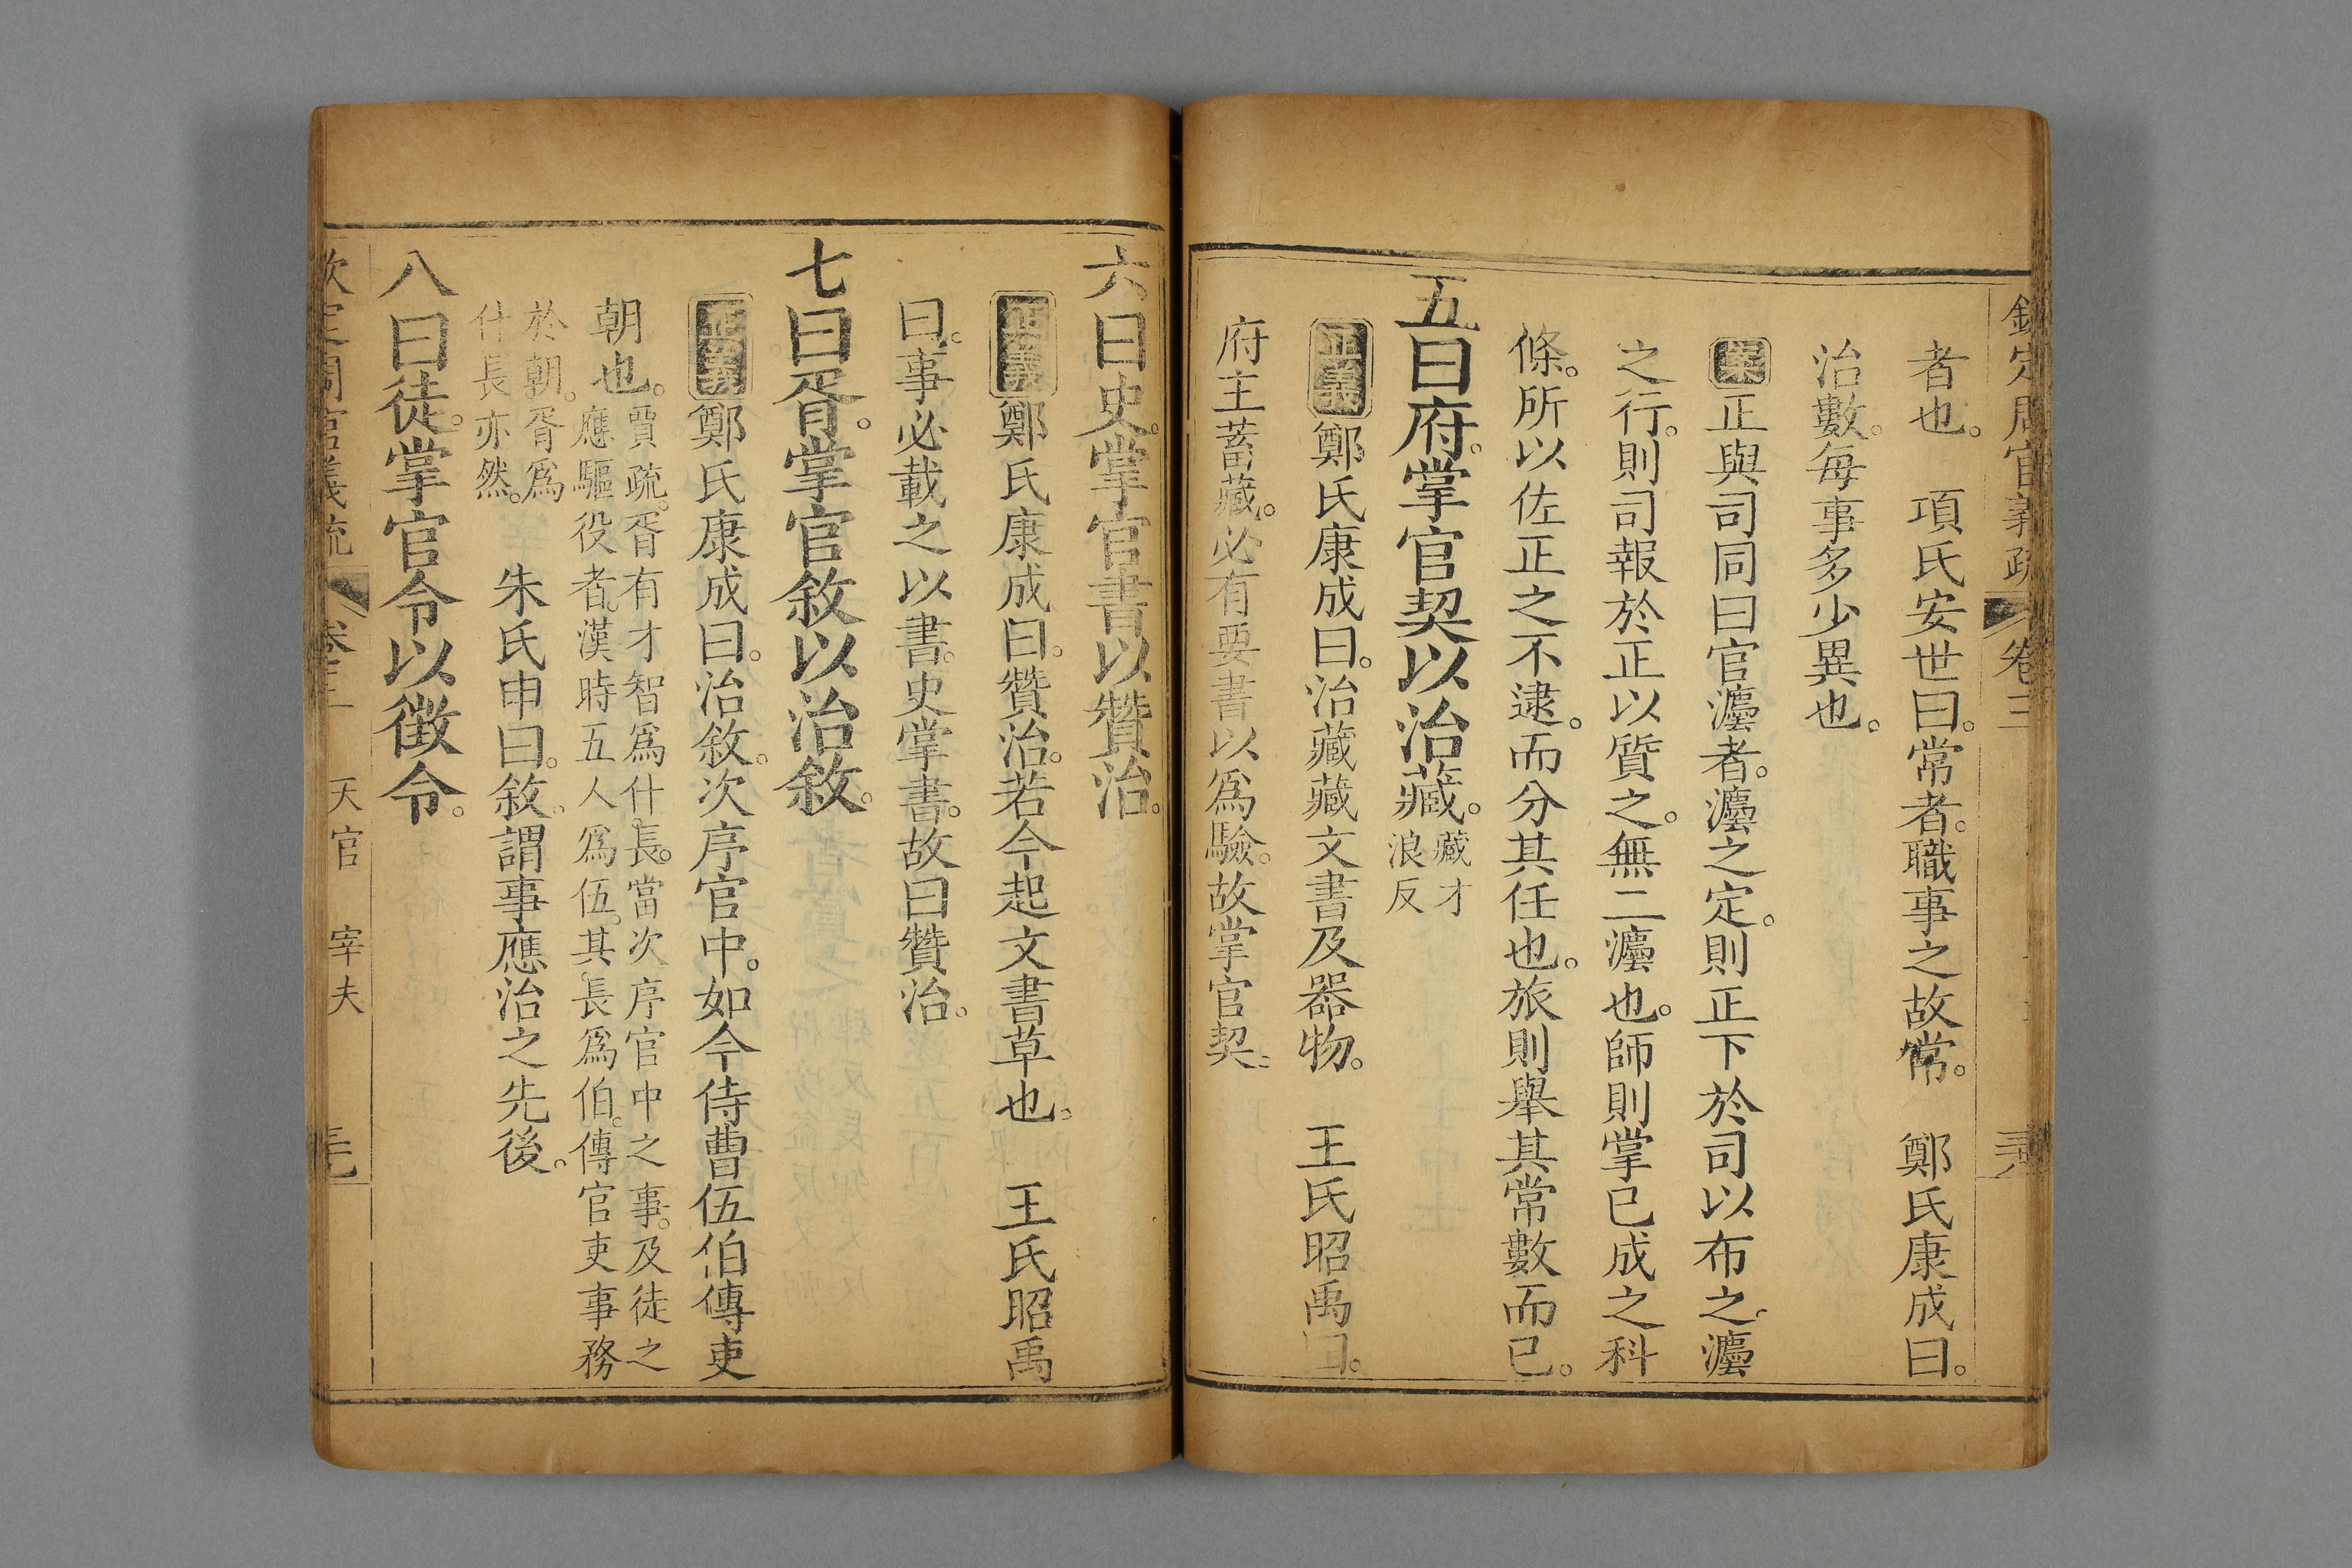 欽定周官義疏 卷三
者也。 項氏安世曰。常者。職事之故常。 鄭氏康成曰。
治數。每事多少異也。
案正與司同曰官灋者。灋之定。則正下於司以布之。灋
之行。則司報於正以質之。無二灋也。師則掌已成之科
條。所以佐正之不逮。而分其任也。旅則舉其常數而已。
五曰府。掌官契以治藏。藏才浪反
正義鄭氏康成曰。治藏藏文書及器物。 王氏昭禹曰。
府主蓄藏。必有要書以為驗。故掌官契。
六曰史。掌官書以贊治。
正義鄭氏康成曰。贊治。若今起文書草也。 王氏昭禹
曰。事必載之以書。史掌書。故曰贊治。
七曰胥。掌官敘以治敘。
正義鄭氏康成曰。治敘。次序官中。如今侍曹伍伯傳吏
朝也。賈疏。胥有才智為什長。當次序官中之事。及徒之
應驅役者。漢時五人為伍。其長為伯。傳官吏事務
於朝。胥為
什長亦然。 朱氏申曰。敘。謂事應治之先後。
八曰徒。掌官令以徵令。
欽定周官義疏 卷三 天官 宰夫